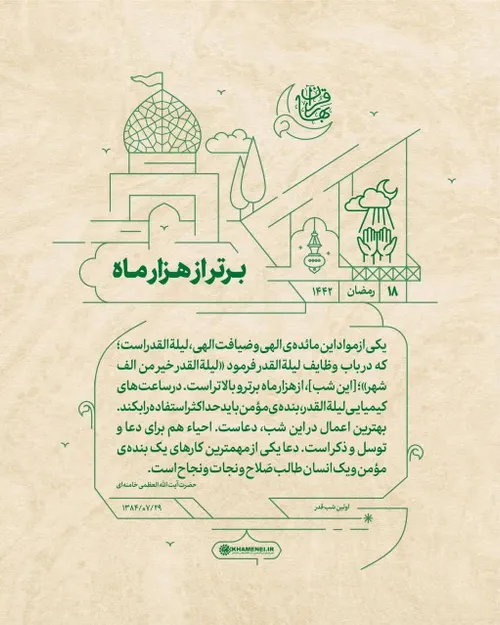 بهار قرآن
برتر از هزار ماه
۱۸ رمضان ۱۴۴۲
یکی از مواد این مائده‌ی الهی و ضیافت الهی، لیلةالقدر است؛
که در باب وظایف لیلةالقدر فرمود «لیلةالقدر خیر من الف
شهر»؛ [این شب]، از هزار ماه برتر و بالاتر است. در ساعت‌های
کیمیایی لیلةالقدر، بنده‌ی مؤمن باید حداکثر استفاده را بکند.
بهترین اعمال در این شب، دعاست. احیاء هم برای دعا و
توسل و ذکر است. دعا یکی از مهمترین کارهای یک بنده‌ی
مؤمن و یک انسان طالب صَلاح و نجات و نجاح است.
حضرت آیت‌الله العظمی خامنه‌ای
اولین شب قدر
۱۳۸۴/۰۷/۲۹
KHAMENEI.IR